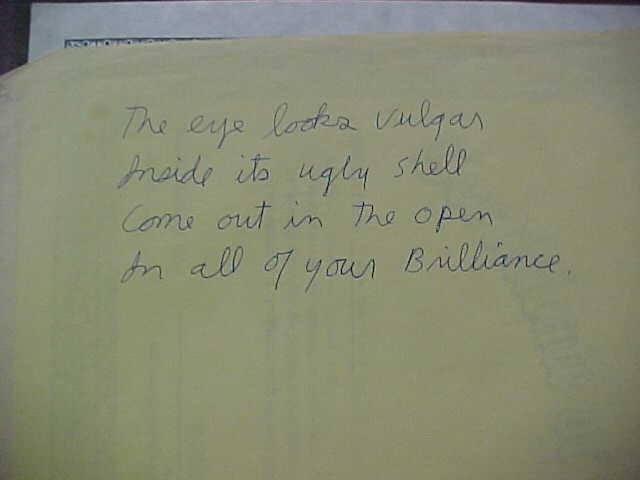 The eye looks vulgar
Inside its ugly shell
Come out in the open
In all of your Brilliance.